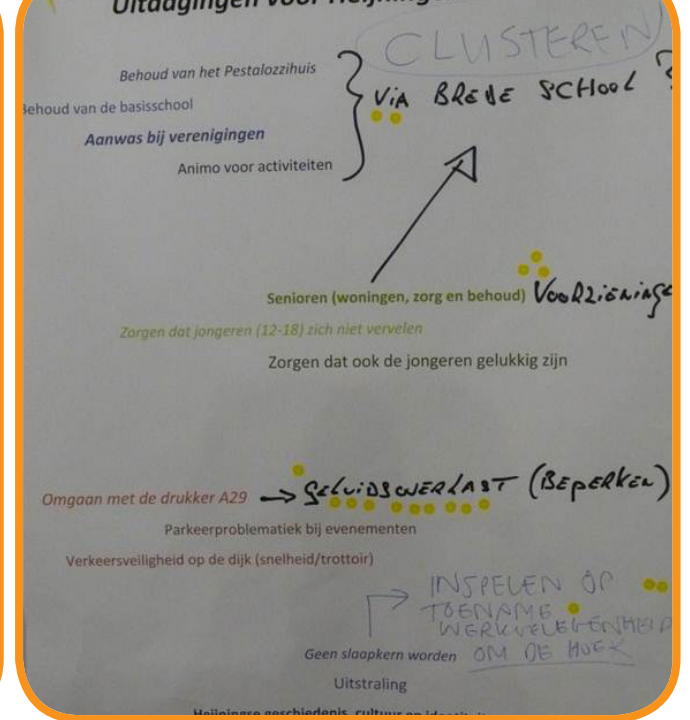 Uitdagingen voor
CLUSTEREN
Behoud van het Pestalozzihuis
Behoud van de basisschool
VIA BREDE SCHOOL ?
Aanwas bij verenigingen
Animo voor activiteiten
Senioren (woningen, zorg en behoud) VOORZIENINGE
Zorgen dat jongeren (12-18) zich niet vervelen
Zorgen dat ook de jongeren gelukkig zijn
Omgaan met de drukker A29 → GELUIDSOVERLAST (BEPERKEN)
Parkeerproblematiek bij evenementen
Verkeersveiligheid op de dijk (snelheid/trottoir)
INSPELEN OP
TOENAME
WERKGELEGENHEID
Geen slaapkern worden OM DE HOEK
Uitstraling
Heijningse geschiedenis, cultuur en